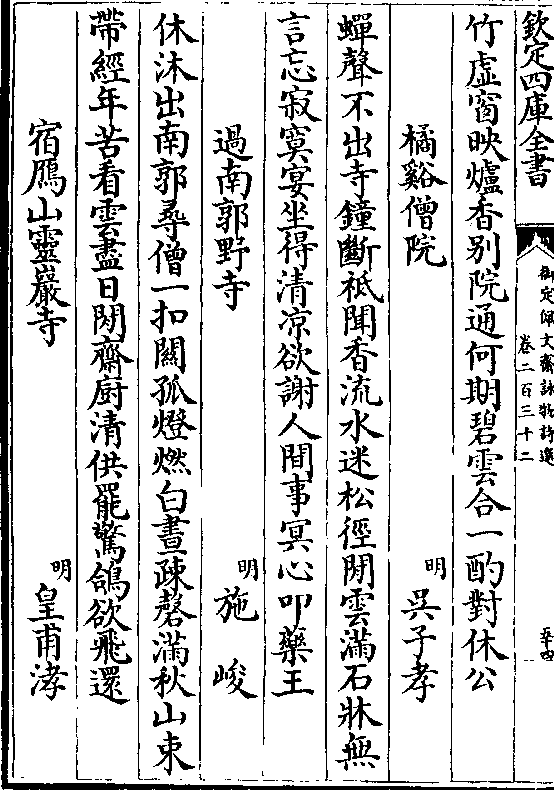 欽定四庫全書
御定佩文齋詠物詩選
卷二百三十二
五十四
竹虛窗映爐香別院通何期碧雲合一酌對休公
橘谿僧院
明 吳子孝
蟬聲不出寺鐘斷祗聞香流水迷松徑閒雲滿石牀無
言忘寂寞宴坐得清凉欲謝人間事冥心叩藥王
過南郭野寺
明 施峻
休沐出南郭尋僧一扣關孤燈燃白晝疎磬滿秋山束
帶經年苦看雲盡日閒齋厨清供罷驚鴿欲飛還
宿鴈山靈巖寺
明 皇甫涍